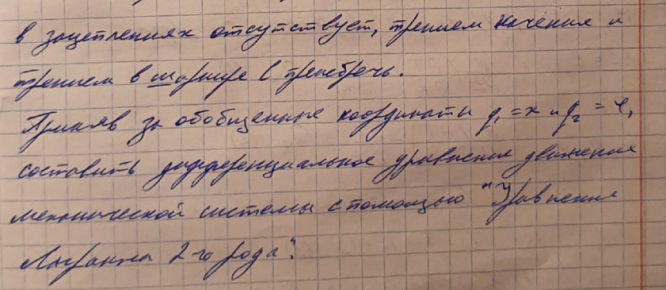 в зацеплениях отсутствует, трением качения и
трением в шарнире С пренебречь.
Приняв за обобщенные координаты q₁ = x и q₂ = φ,
составить дифференциальное уравнение движения
механической системы с помощью "Уравнения
Лагранжа 2-го рода".